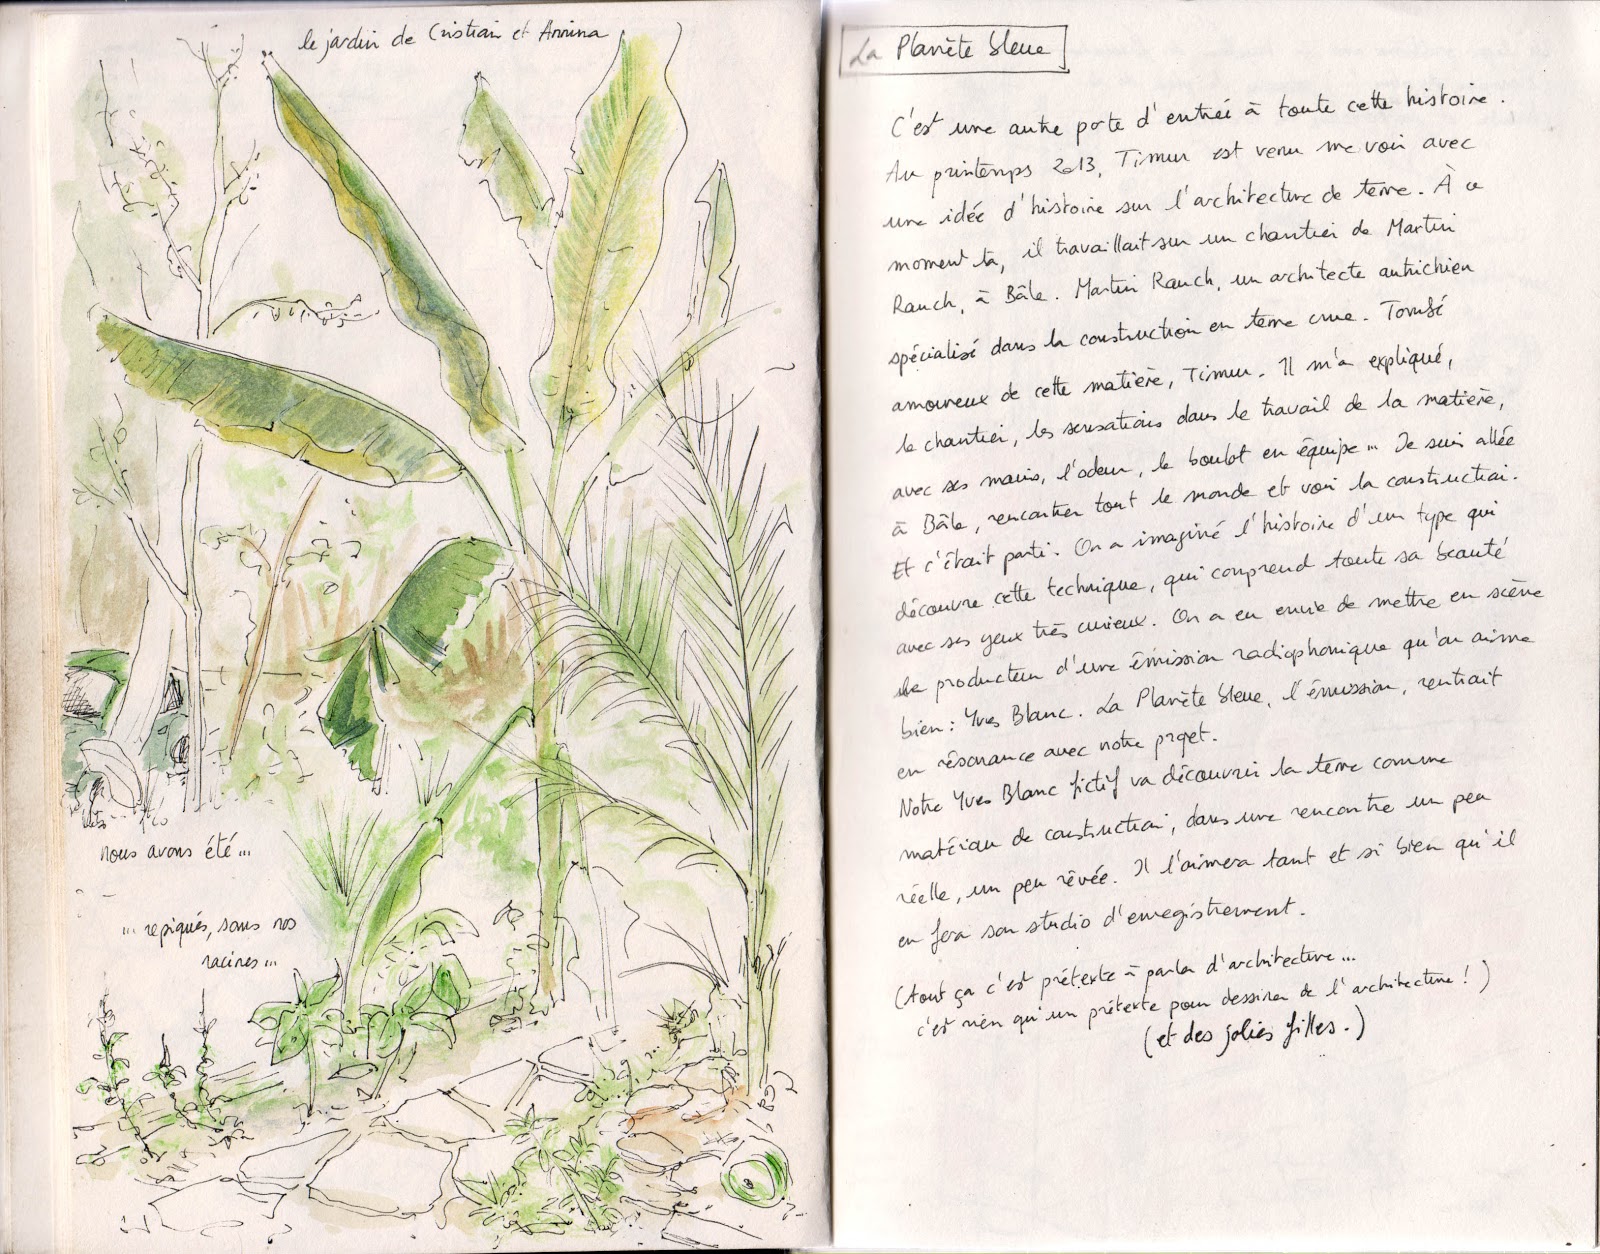 le jardin de Cristian et Annina
nous avons été...
... repiqués, sans nos
racines...
La Planète bleue
C'est une autre porte d'entrée à toute cette histoire.
Au printemps 2013, Timur est venu me voir avec
une idée d'histoire sur l'architecture de terre. À ce
moment là, il travaillait sur un chantier de Martin
Rauch, à Bâle. Martin Rauch, un architecte autrichien
spécialisé dans la construction en terre crue. Tombé
amoureux de cette matière, Timur. Il m'a expliqué,
le chantier, les sensations dans le travail de la matière,
avec ses mains, l'odeur, le boulot en équipe... Je suis allée
à Bâle, rencontrer tout le monde et voir la construction.
Et c'était parti. On a imaginé l'histoire d'un type qui
découvre cette technique, qui comprend toute sa beauté
avec ses yeux très curieux. On a eu envie de mettre en scène
le producteur d'une émission radiophonique qu'on aime
bien : Yves Blanc. La Planète bleue, l'émission, rentrait
en résonance avec notre projet.
Notre Yves Blanc fictif va découvrir la terre comme
matériau de construction, dans une rencontre un peu
réelle, un peu rêvée. Il l'aimera tant et si bien qu'il
en fera son studio d'enregistrement.
(tout ça c'est prétexte à parler d'architecture...
c'est rien qu'un prétexte pour dessiner de l'architecture !)
(et des jolies filles.)